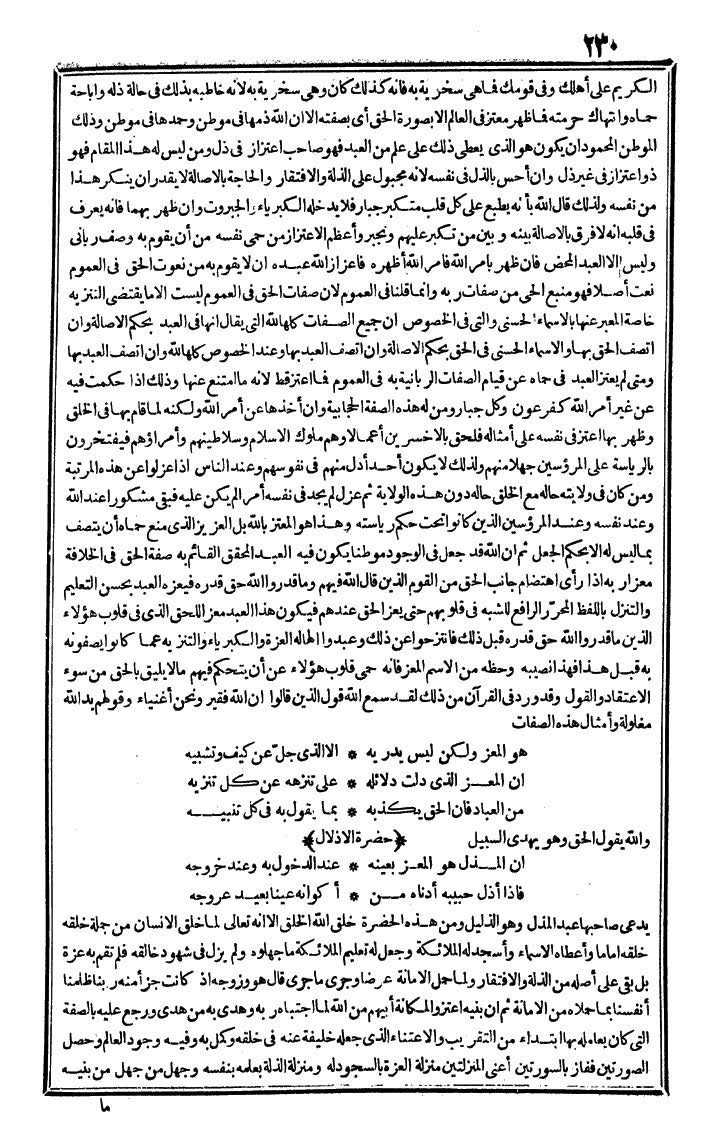 ٢٣٠
الكريم على أهلك وفى قومك فماهى سخرية به فانه كذلك كان وهى سخرية به لانه خاطبه بذلك فى حالة ذله واباحة
حماه وانتهاك حرمته فماظهر معتز فى العالم الا بصورة الحق أى بصفته الا ان الله ذمها فى موطن وحمدها فى موطن وذلك
الموطن المحمود ان يكون هو الذى يعطى ذلك على علم من العبد فهو صاحب اعتزاز فى ذل ومن ليس له هذا المقام فهو
ذو اعتزاز فى غير ذل وان أحس بالذل فى نفسه لانه مجبول على الذلة والافتقار والحاجة بالاصالة لا يقدر ان ينكر هذا
من نفسه ولذلك قال الله بأنه يطبع على كل قلب متكبر جبار فلا يدخله الكبرياء والجبروت وان ظهر بهما فانه يعرف
فى قلبه انه لا فرق بالاصالة بينه وبين من تكبر عليهم وتجبر وأعظم الاعتزاز من حمى نفسه من أن يقوم به وصف ربانى
وليس الا العبد المحض فان ظهر بامر الله فامر الله أظهره فاعزاز الله عبده ان لا يقوم به من نعوت الحق فى العموم
نعت أصلا فهو منيع الحمى من صفات ربه وانما قلنا فى العموم لان صفات الحق فى العموم ليست الا ما يقتضى التنزيه
خاصة المعبر عنها بالاسماء الحسنى والتى فى الخصوص ان جميع الصفات كلها لله التى يقال انها فى العبد بحكم الاصالة وان
اتصف الحق بها والاسماء الحسنى فى الحق بحكم الاصالة وان اتصف العبد بها وعند الخصوص كلها لله وان اتصف العبد بها
ومتى لم يعتز العبد فى حماه عن قيام الصفات الربانية به فى العموم فما اعتز قط لانه ما امتنع عنها وذلك اذا حكمت فيه
عن غير أمر الله كفرعون وكل جبار ومن له هذه الصفة الحجابية وان أخذها عن أمر الله ولكنه لما قام بها فى الخلق
وظهر بها اعتز فى نفسه على أمثاله فلحق بالاخسرين أعمالا وهم ملوك الاسلام وسلاطينهم وأمراؤهم فيفتخرون
بالرياسة على المرؤسين جهلا منهم ولذلك لا يكون أحد أذل منهم فى نفوسهم وعند الناس اذا عزلوا عن هذه المرتبة
ومن كان فى ولايته حاله مع الخلق حاله دون هذه الولاية ثم عزل لم يجد فى نفسه أمرا لم يكن عليه فبقى مشكورا عند الله
وعند نفسه وعند المرؤسين الذين كانوا تحت حكم رياسته وهذا هو المعتز بالله بل العزيز الذى منع حماه أن يتصف
بما ليس له الا بحكم الجعل ثم ان الله قد جعل فى الوجود موطنا يكون فيه العبد المحقق القائم به صفة الحق فى الخلافة
معزا ربه اذا رأى اهتضام جانب الحق من القوم الذين قال الله فيهم وما قدروا الله حق قدره فيعزه العبد بحسن التعليم
والتنزل باللفظ المحرر الرافع للشبه فى قلوبهم حتى يعز الحق عندهم فيكون هذا العبد معزا للحق الذى فى قلوب هؤلاء
الذين ما قدروا الله حق قدره قبل ذلك فانتزحوا عن ذلك وعبدوا الها له العزة والكبرياء والتنزيه عما كانوا يصفونه
به قبل هذا فهذا نصيبه وحظه من الاسم المعز فانه حمى قلوب هؤلاء عن أن يتحكم فيهم ما لا يليق بالحق من سوء
الاعتقاد والقول وقد ورد فى القرآن من ذلك لقد سمع الله قول الذين قالوا ان الله فقير ونحن أغنياء وقولهم يد الله
مغلولة وأمثال هذه الصفات
هو المعز ولكن ليس يدريه * الا الذى جل عن كيف وتشبيه
ان المعز الذى دلت دلائله * على تنزهه عن كل تنزيه
من العباد فان الحق يكذبه * بما يقول به فى كل تنبيه
والله يقول الحق وهو يهدى السبيل ﴿حضرة الاذلال﴾
ان المذل هو المعز بعينه * عند الدخول به وعند خروجه
فاذا أذل حبيبه أدناه من * أكوانه عينا بعيد عروجه
يدعى صاحبها عبد المذل وهو الذليل ومن هذه الحضرة خلق الله الخلق الا انه تعالى لما خلق الانسان من جملة خلقه
خلقه اماما وأعطاه الاسماء وأسجد له الملائكة وجعل له تعليم الملائكة ما جهلوه ولم يزل فى شهود خالقه فلم تقم به عزة
بل بقى على أصله من الذلة والافتقار ولما حمل الامانة عرضا وجرى ما جرى قال هو وزوجه اذ كانت جزأ منه ربنا ظلمنا
أنفسنا بما حملاه من الامانة ثم ان بنيه اعتزوا لمكانة أبيهم من الله لما اجتباه ربه وهدى به من هدى ورجع عليه بالصفة
التى كان يعامله بها ابتداء من التقريب والاعتناء الذى جعله خليفة عنه فى خلقه وكمل به وفيه وجود العالم وحصل
الصورتين ففاز بالسورتين أعنى المنزلتين منزلة العزة بالسجود له ومنزلة الذلة بعلمه بنفسه وجهل من جهل من بنيه
ما